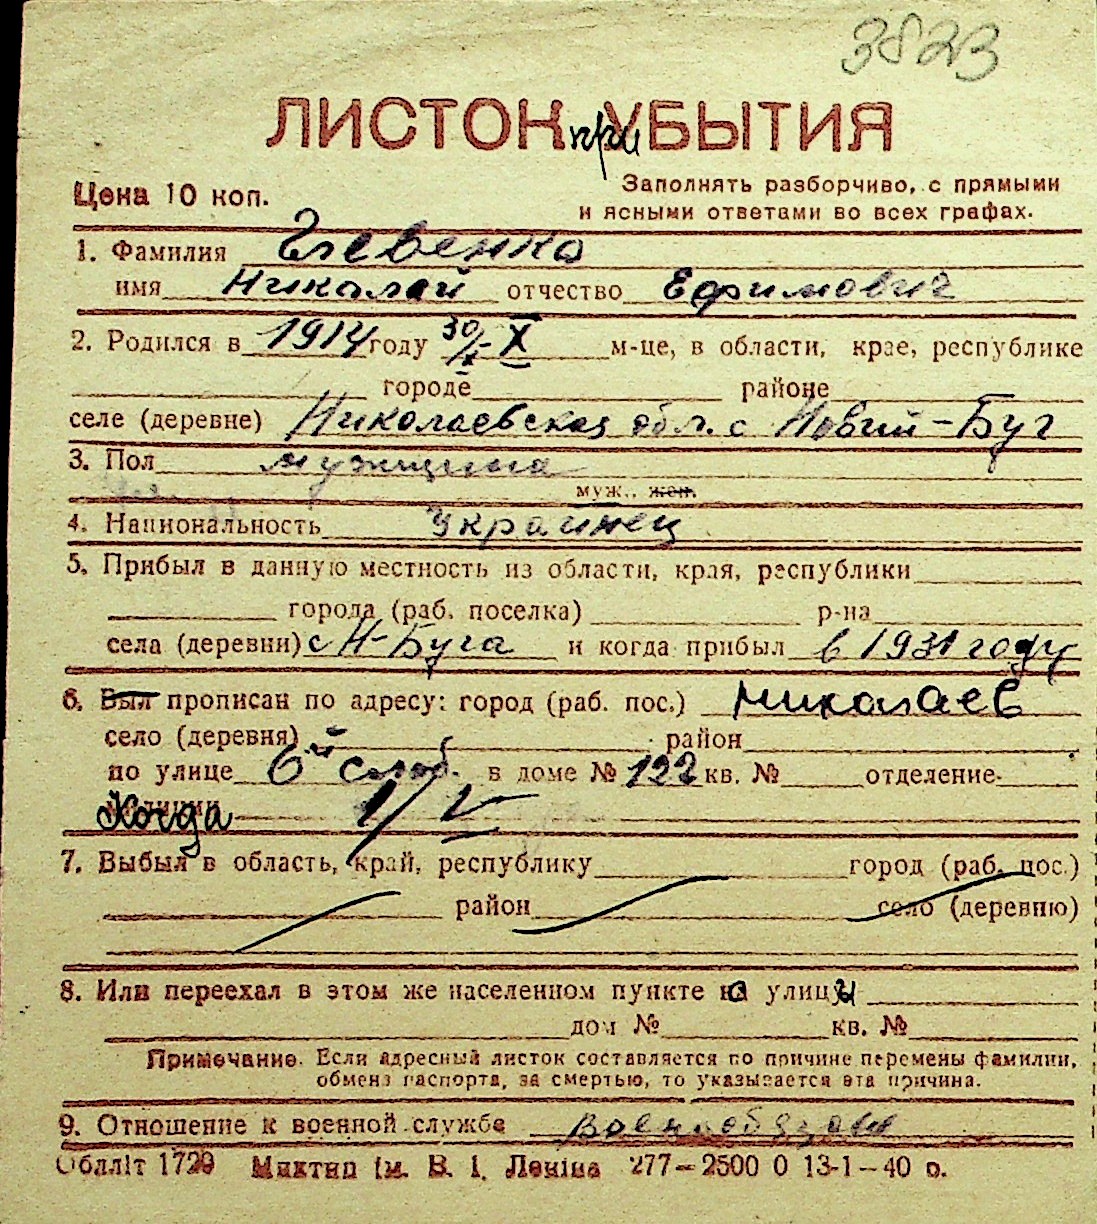 3823
ЛИСТОК при УБЫТИЯ
Цена 10 коп.
Заполнять разборчиво, с прямыми
и ясными ответами во всех графах.
1. Фамилия
имя Николай отчество Ефимович
2. Родился в 1914 году 30/X X м-це, в области, крае, республике
городе районе
селе (деревне) Николаевская обл. с Новый-Буг
3. Пол мужщина
муж., жен.
4. Национальность Украинец
5. Прибыл в данную местность из области, края, республики
города (раб. поселка) р-на
села (деревни) с Н-Буга и когда прибыл в 1931 году
6. Был прописан по адресу: город (раб. пос.) Николаев
село (деревня) район
по улице 6й слоб. в доме № 122 кв. № отделение
милиции Когда 1/V
7. Выбыл в область, край, республику город (раб. пос.)
район село (деревню)
8. Или переехал в этом же населенном пункте на улицы
дом № кв. №
Примечание. Если адресный листок составляется по причине перемены фамилии,
обмена паспорта, за смертью, то указывается эта причина.
9. Отношение к военной службе военнообязан
Облліт 1729 Миктип ім. В. І. Леніна 277—2500 0 13-1—40 р.